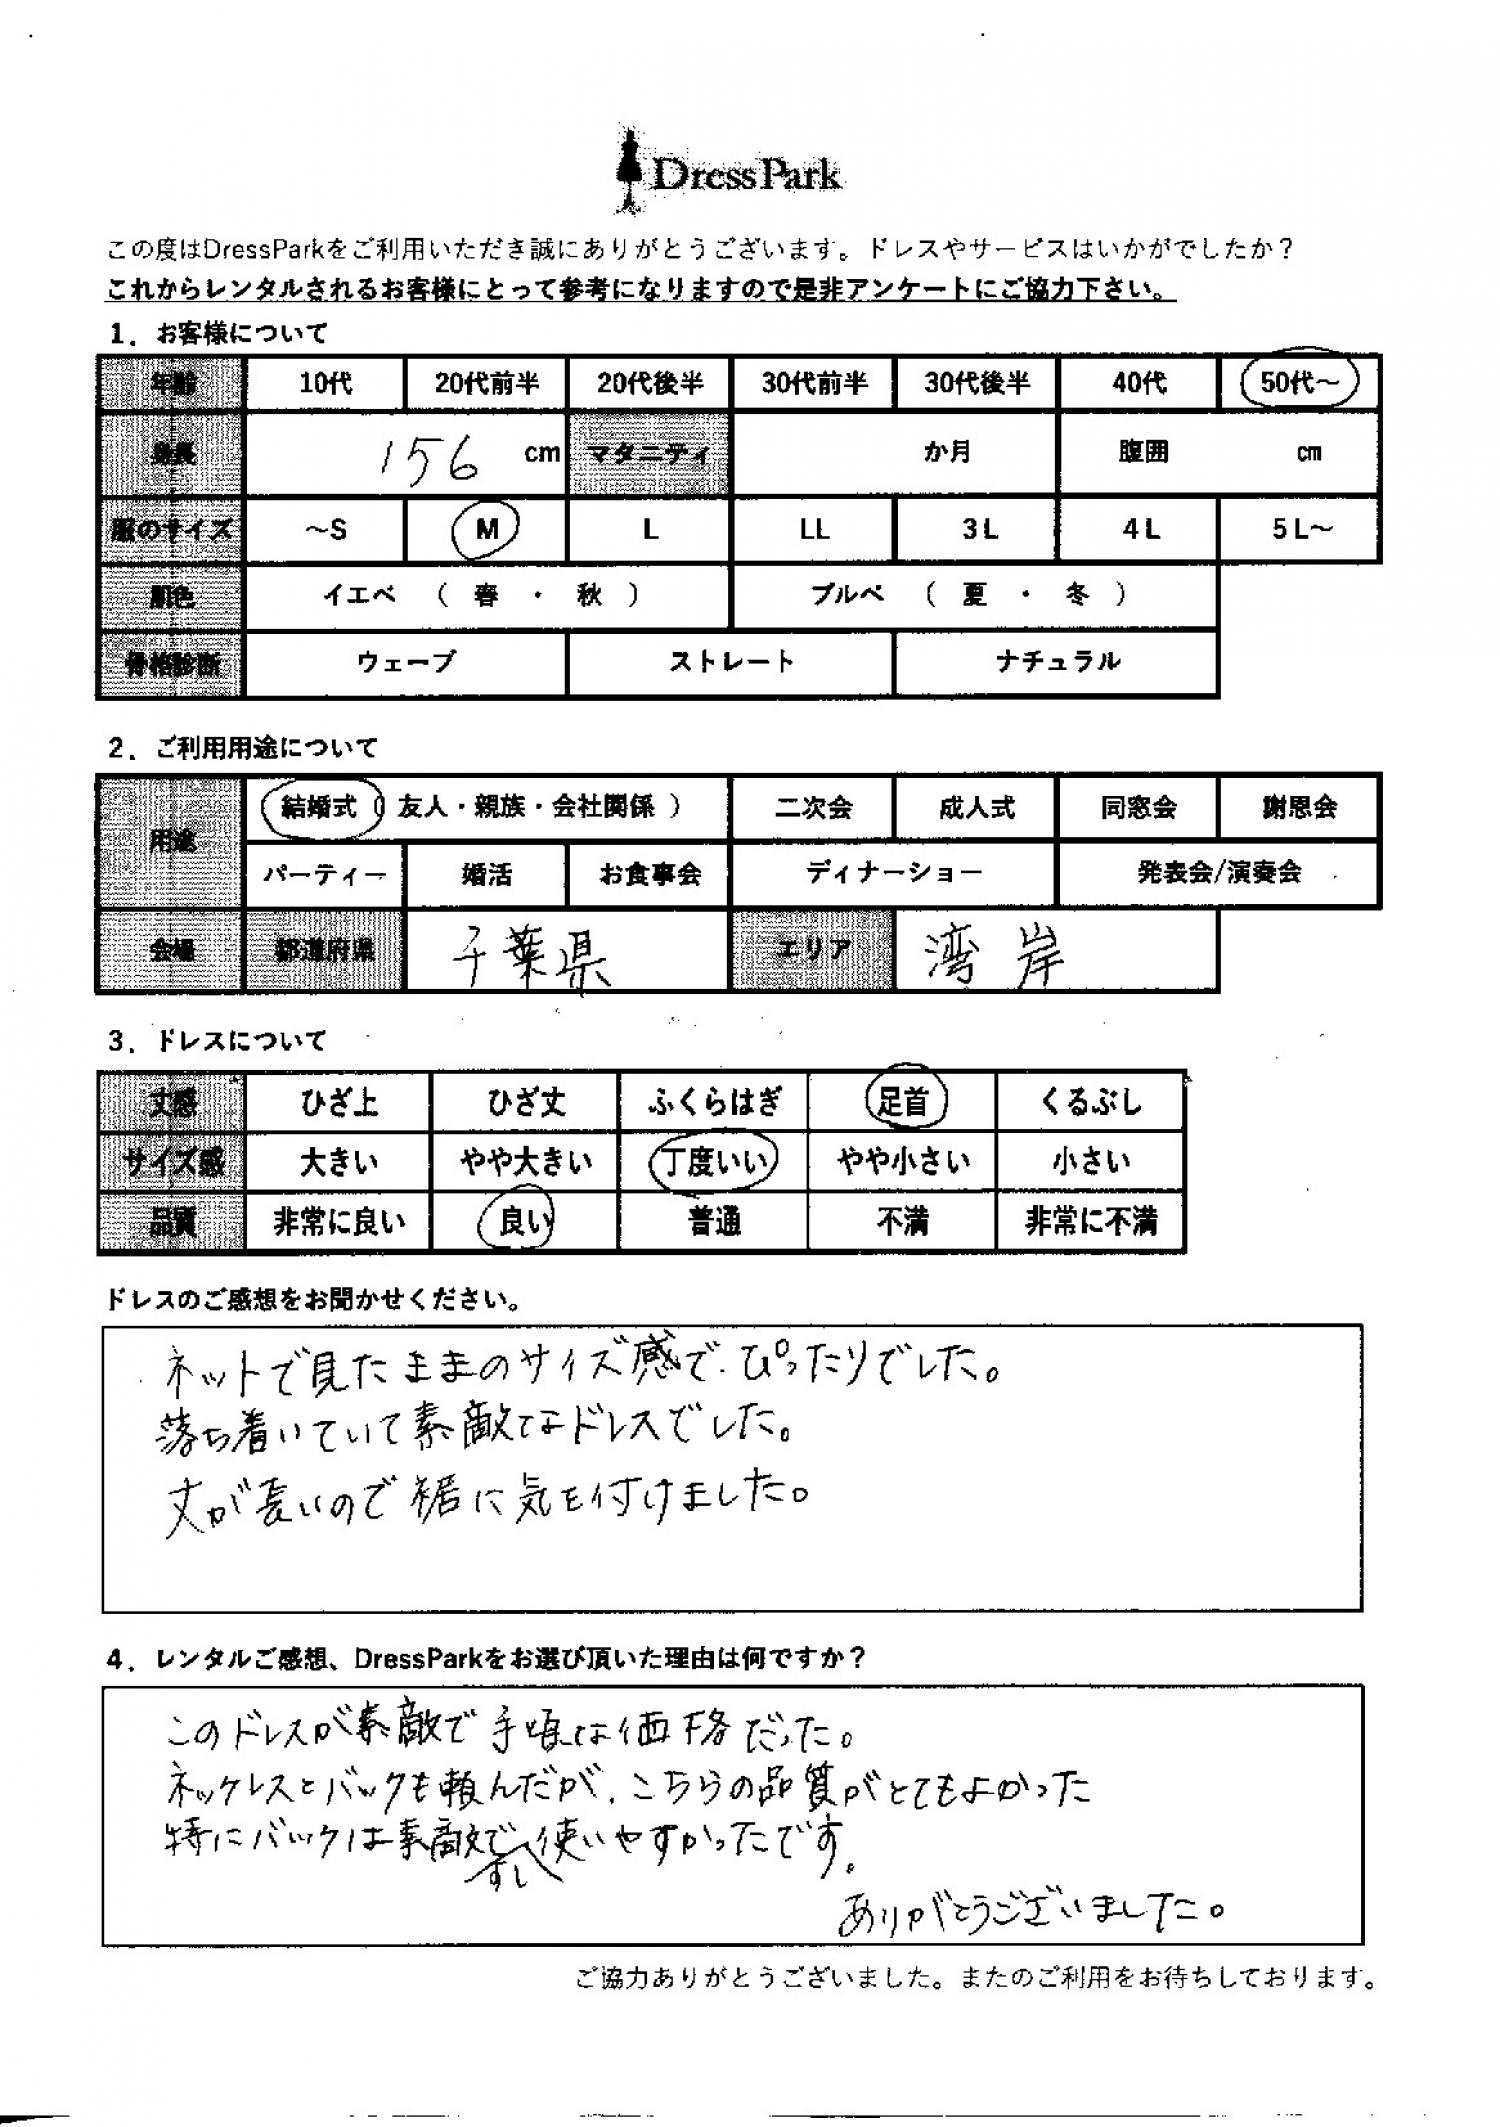 DressPark
この度はDressParkをご利用いただき誠にありがとうございます。ドレスやサービスはいかがでしたか？
これからレンタルされるお客様にとって参考になりますので是非アンケートにご協力下さい。
1．お客様について
年齢 10代 20代前半 20代後半 30代前半 30代後半 40代 50代～
身長 156 cm マタニティ か月 腹囲 cm
服のサイズ ～S M L LL 3L 4L 5L～
肌色 イエベ （ 春 ・ 秋 ） ブルベ （ 夏 ・ 冬 ）
骨格診断 ウェーブ ストレート ナチュラル
2．ご利用用途について
用途 結婚式（ 友人・親族・会社関係 ） 二次会 成人式 同窓会 謝恩会
パーティー 婚活 お食事会 ディナーショー 発表会/演奏会
会場 都道府県 千葉県 エリア 湾岸
3．ドレスについて
丈感 ひざ上 ひざ丈 ふくらはぎ 足首 くるぶし
サイズ感 大きい やや大きい 丁度いい やや小さい 小さい
品質 非常に良い 良い 普通 不満 非常に不満
ドレスのご感想をお聞かせください。
ネットで見たままのサイズ感で、ぴったりでした。
落ち着いていて素敵なドレスでした。
丈が長いので裾に気を付けました。
4．レンタルご感想、DressParkをお選び頂いた理由は何ですか？
このドレスが素敵で手頃な価格だった。
ネックレスとバックも頼んだが、こちらの品質がとてもよかった
特にバックは素敵で使いやすかったです。
すし
ありがとうございました。
ご協力ありがとうございました。またのご利用をお待ちしております。